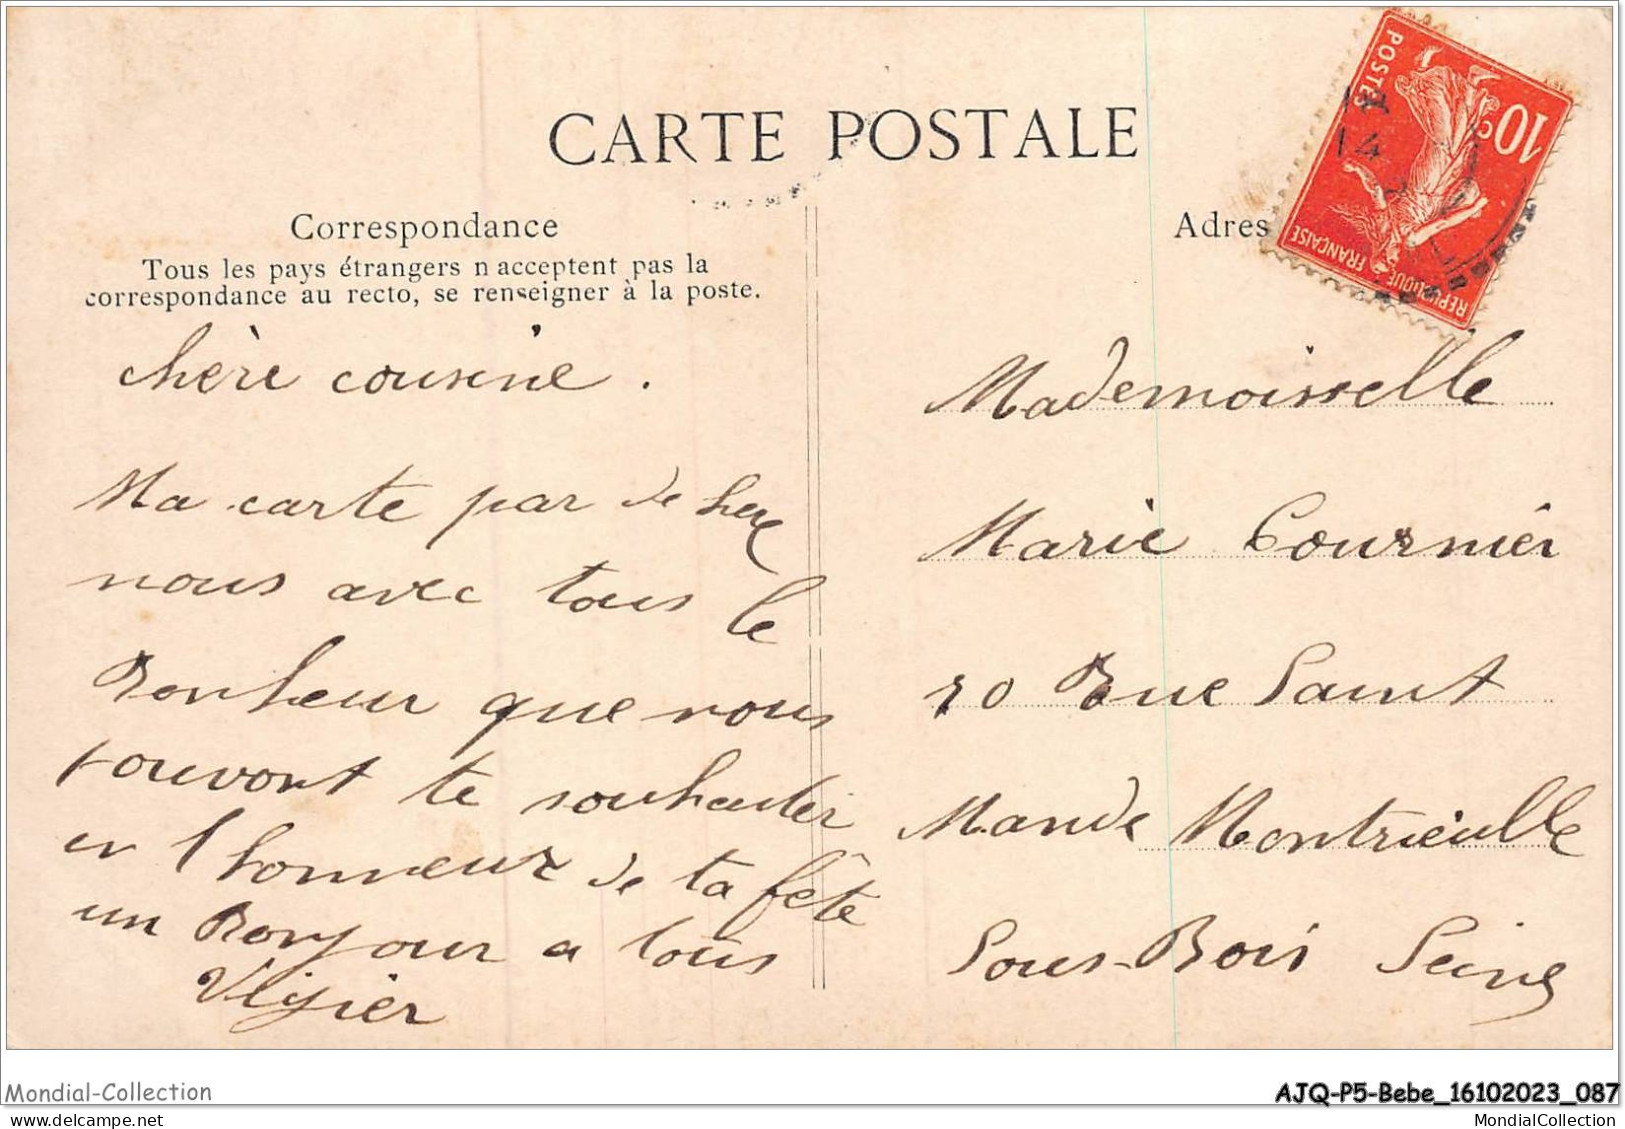 CARTE POSTALE
Correspondance
Tous les pays étrangers n acceptent pas la
correspondance au recto, se renseigner à la poste.
chère cousine.
Ma carte par de
nous avec tous le
Bonheur que nous
pouvont te souhaiter
en l honneur de ta fête
un Bonjour a tous
Vigier
Adres
POSTES
10c
REPUBLIQUE FRANÇAISE
14
Mademoisselle
Marie Cournier
20 Rue Saint
Mande Montrieulle
Sous-Bois Seine
Mondial-Collection
AJQ-P5-Bebe_16102023_087
MondialCollection